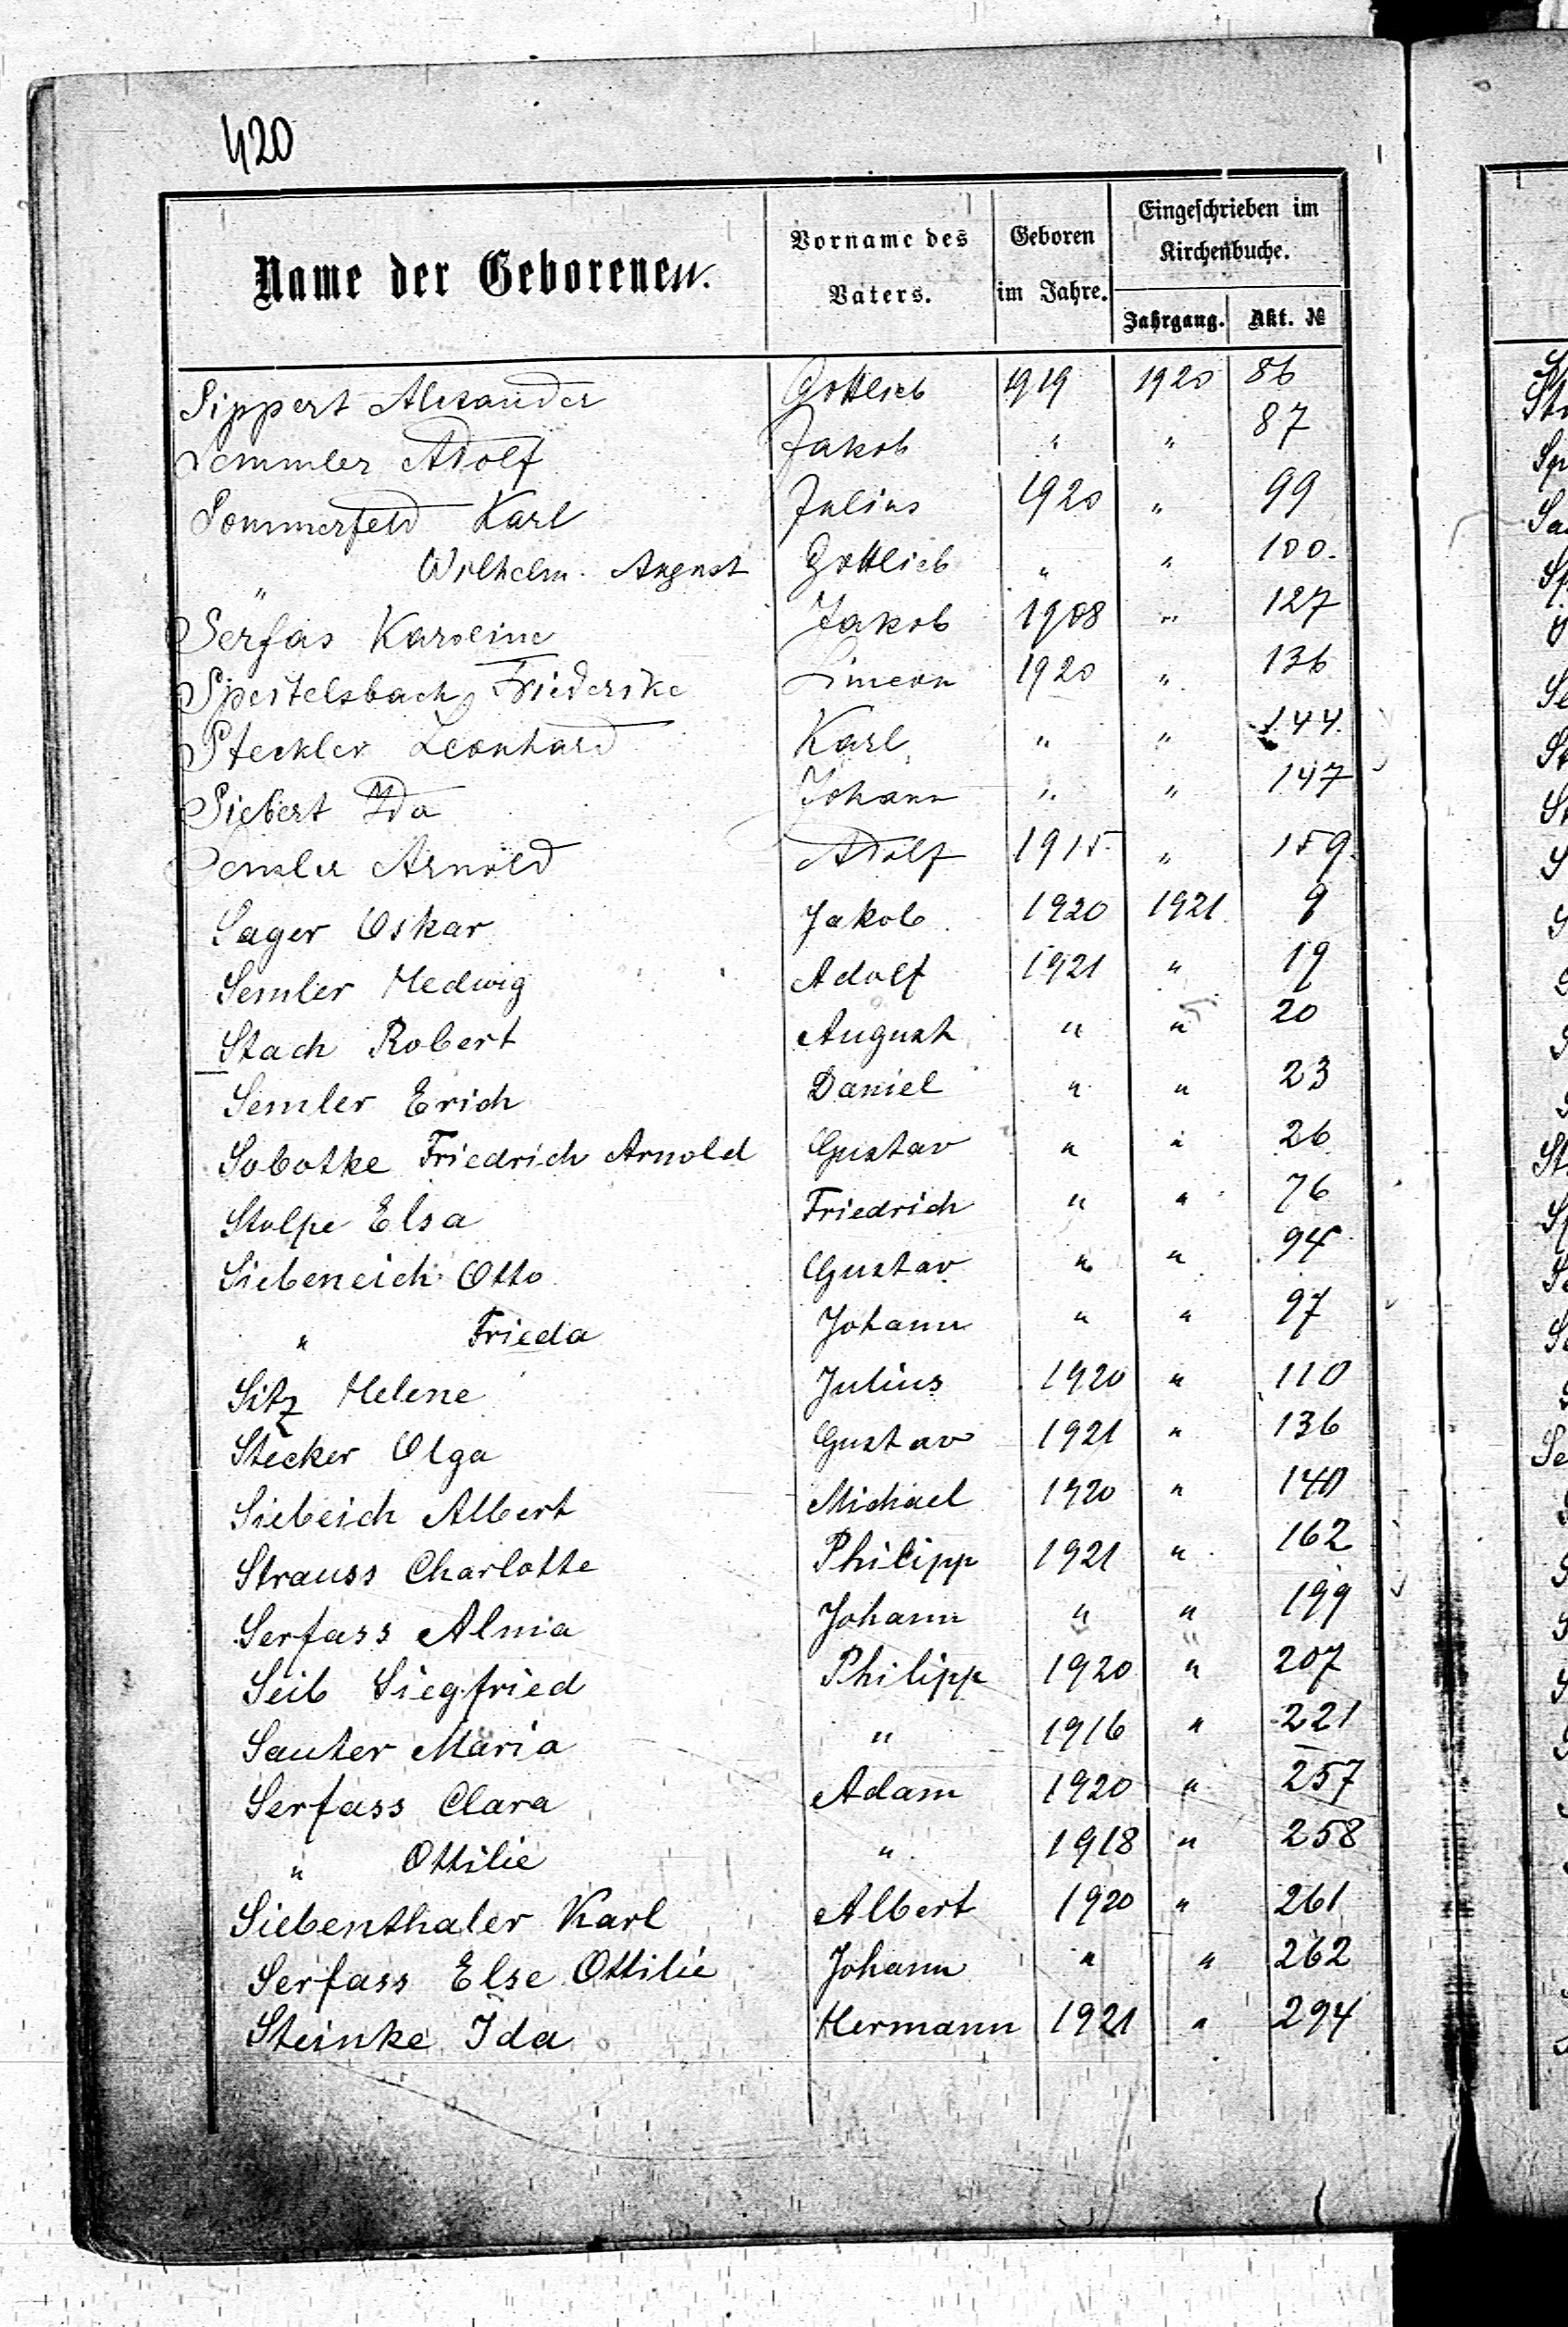 420
Name der Geborenen. Vorname des Vaters. Geboren im Jahre. Eingeschrieben im Kirchenbuche.
Jahrgang. Akt. №
Sippert Alexander Gottlieb 1919 1920 86
Semmler Adolf Jakob " " 87
Sommerfeld Karl Julius 1920 " 99
" Wilhelm August Gottlieb " " 100.
Serfas Karoline Jakob 1908 " 127
Speitelsbach Friederike Simeon 1920 " 136
Steckler Leonhard Karl " " 144.
Siebert Ida Johann " " 147
Semler Arnold Adolf 1915 " 159.
Sager Oskar Jakob 1920 1921 9
Semler Hedwig Adolf 1921 " 19
Stach Robert August " " 20
Semler Erich Daniel " " 23
Sobotke Friedrich Arnold Gustav " " 26
Stolpe Elsa Friedrich " " 76
Siebeneich Otto Gustav " " 94
" Frieda Johann " " 97
Sitz Helene Julius 1920 " 110
Stecker Olga Gustav 1921 " 136
Siebeich Albert Michael 1920 " 140
Strauss Charlotte Philipp 1921 " 162
Serfass Alma Johann " " 199
Seib Siegfried Philipp 1920 " 207
Sauter Maria " 1916 " 221
Serfass Clara Adam 1920 " 257
" Ottilie " 1918 " 258
Siebenthaler Karl Albert 1920 " 261
Serfass Else Ottilie Johann " " 262
Steinke Ida Hermann 1921 " 294